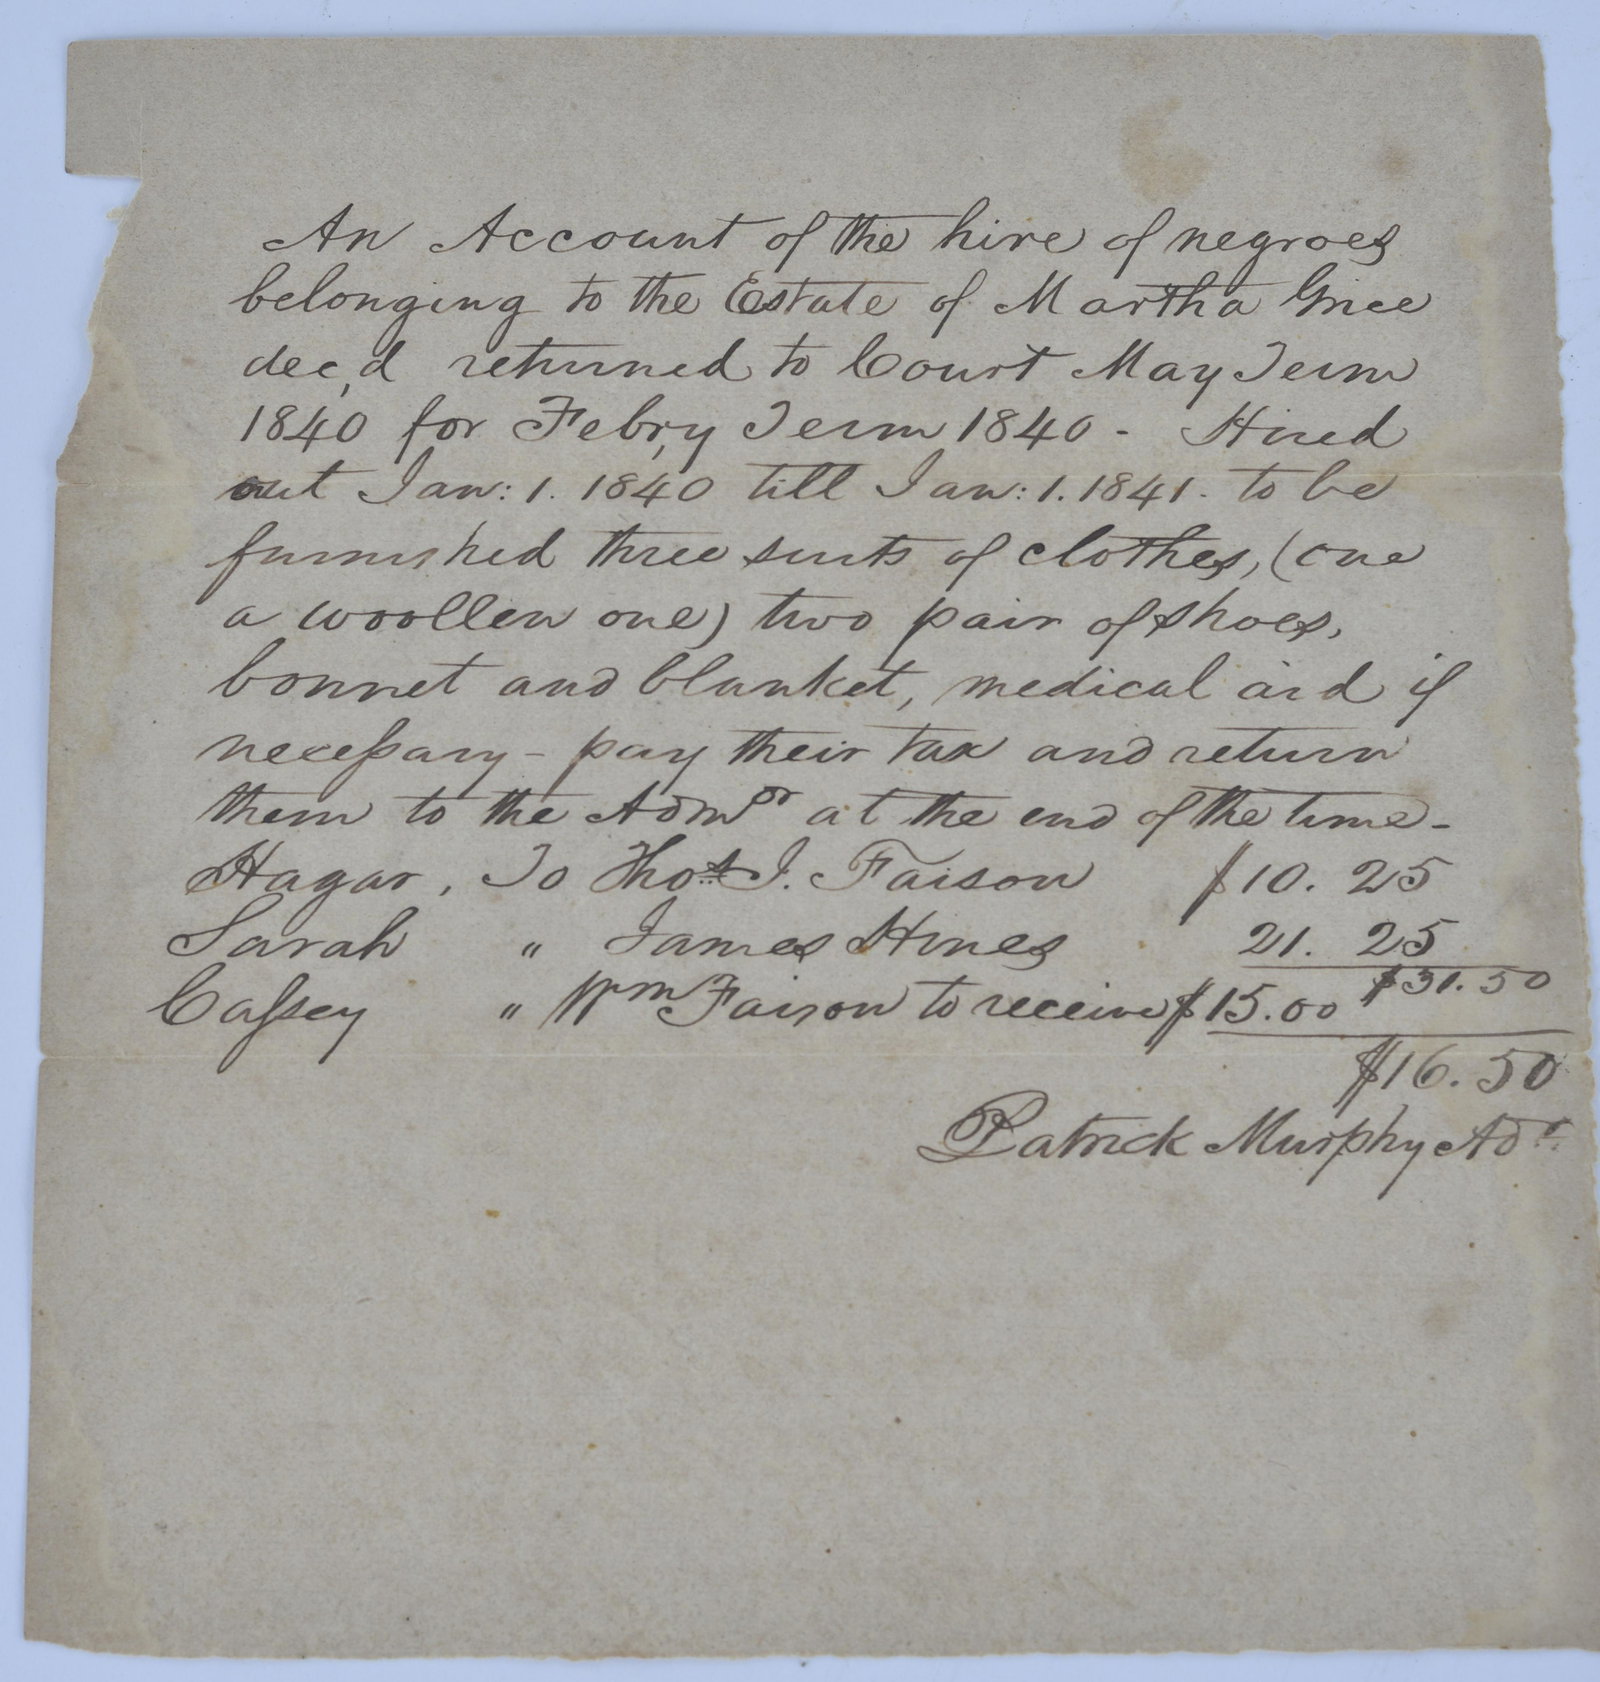 An Account of the hire of negroes
belonging to the Estate of Martha Grice
dec,d returned to Court May Term
1840 for Febry Term 1840 - Hired
out Jan: 1. 1840 till Jan: 1. 1841. to be
furnished three suits of clothes, (one
a woollen one) two pair of shoes,
bonnet and blanket, medical aid if
necessary - pay their tax and return
them to the Admor at the end of the time -
Hagar, To Thos. J. Faison $10. 25
Sarah " James Hines 21. 25
$31.50
Cassey " Wm Faison to receive $15.00
$16.50
Patrick Murphy Adr